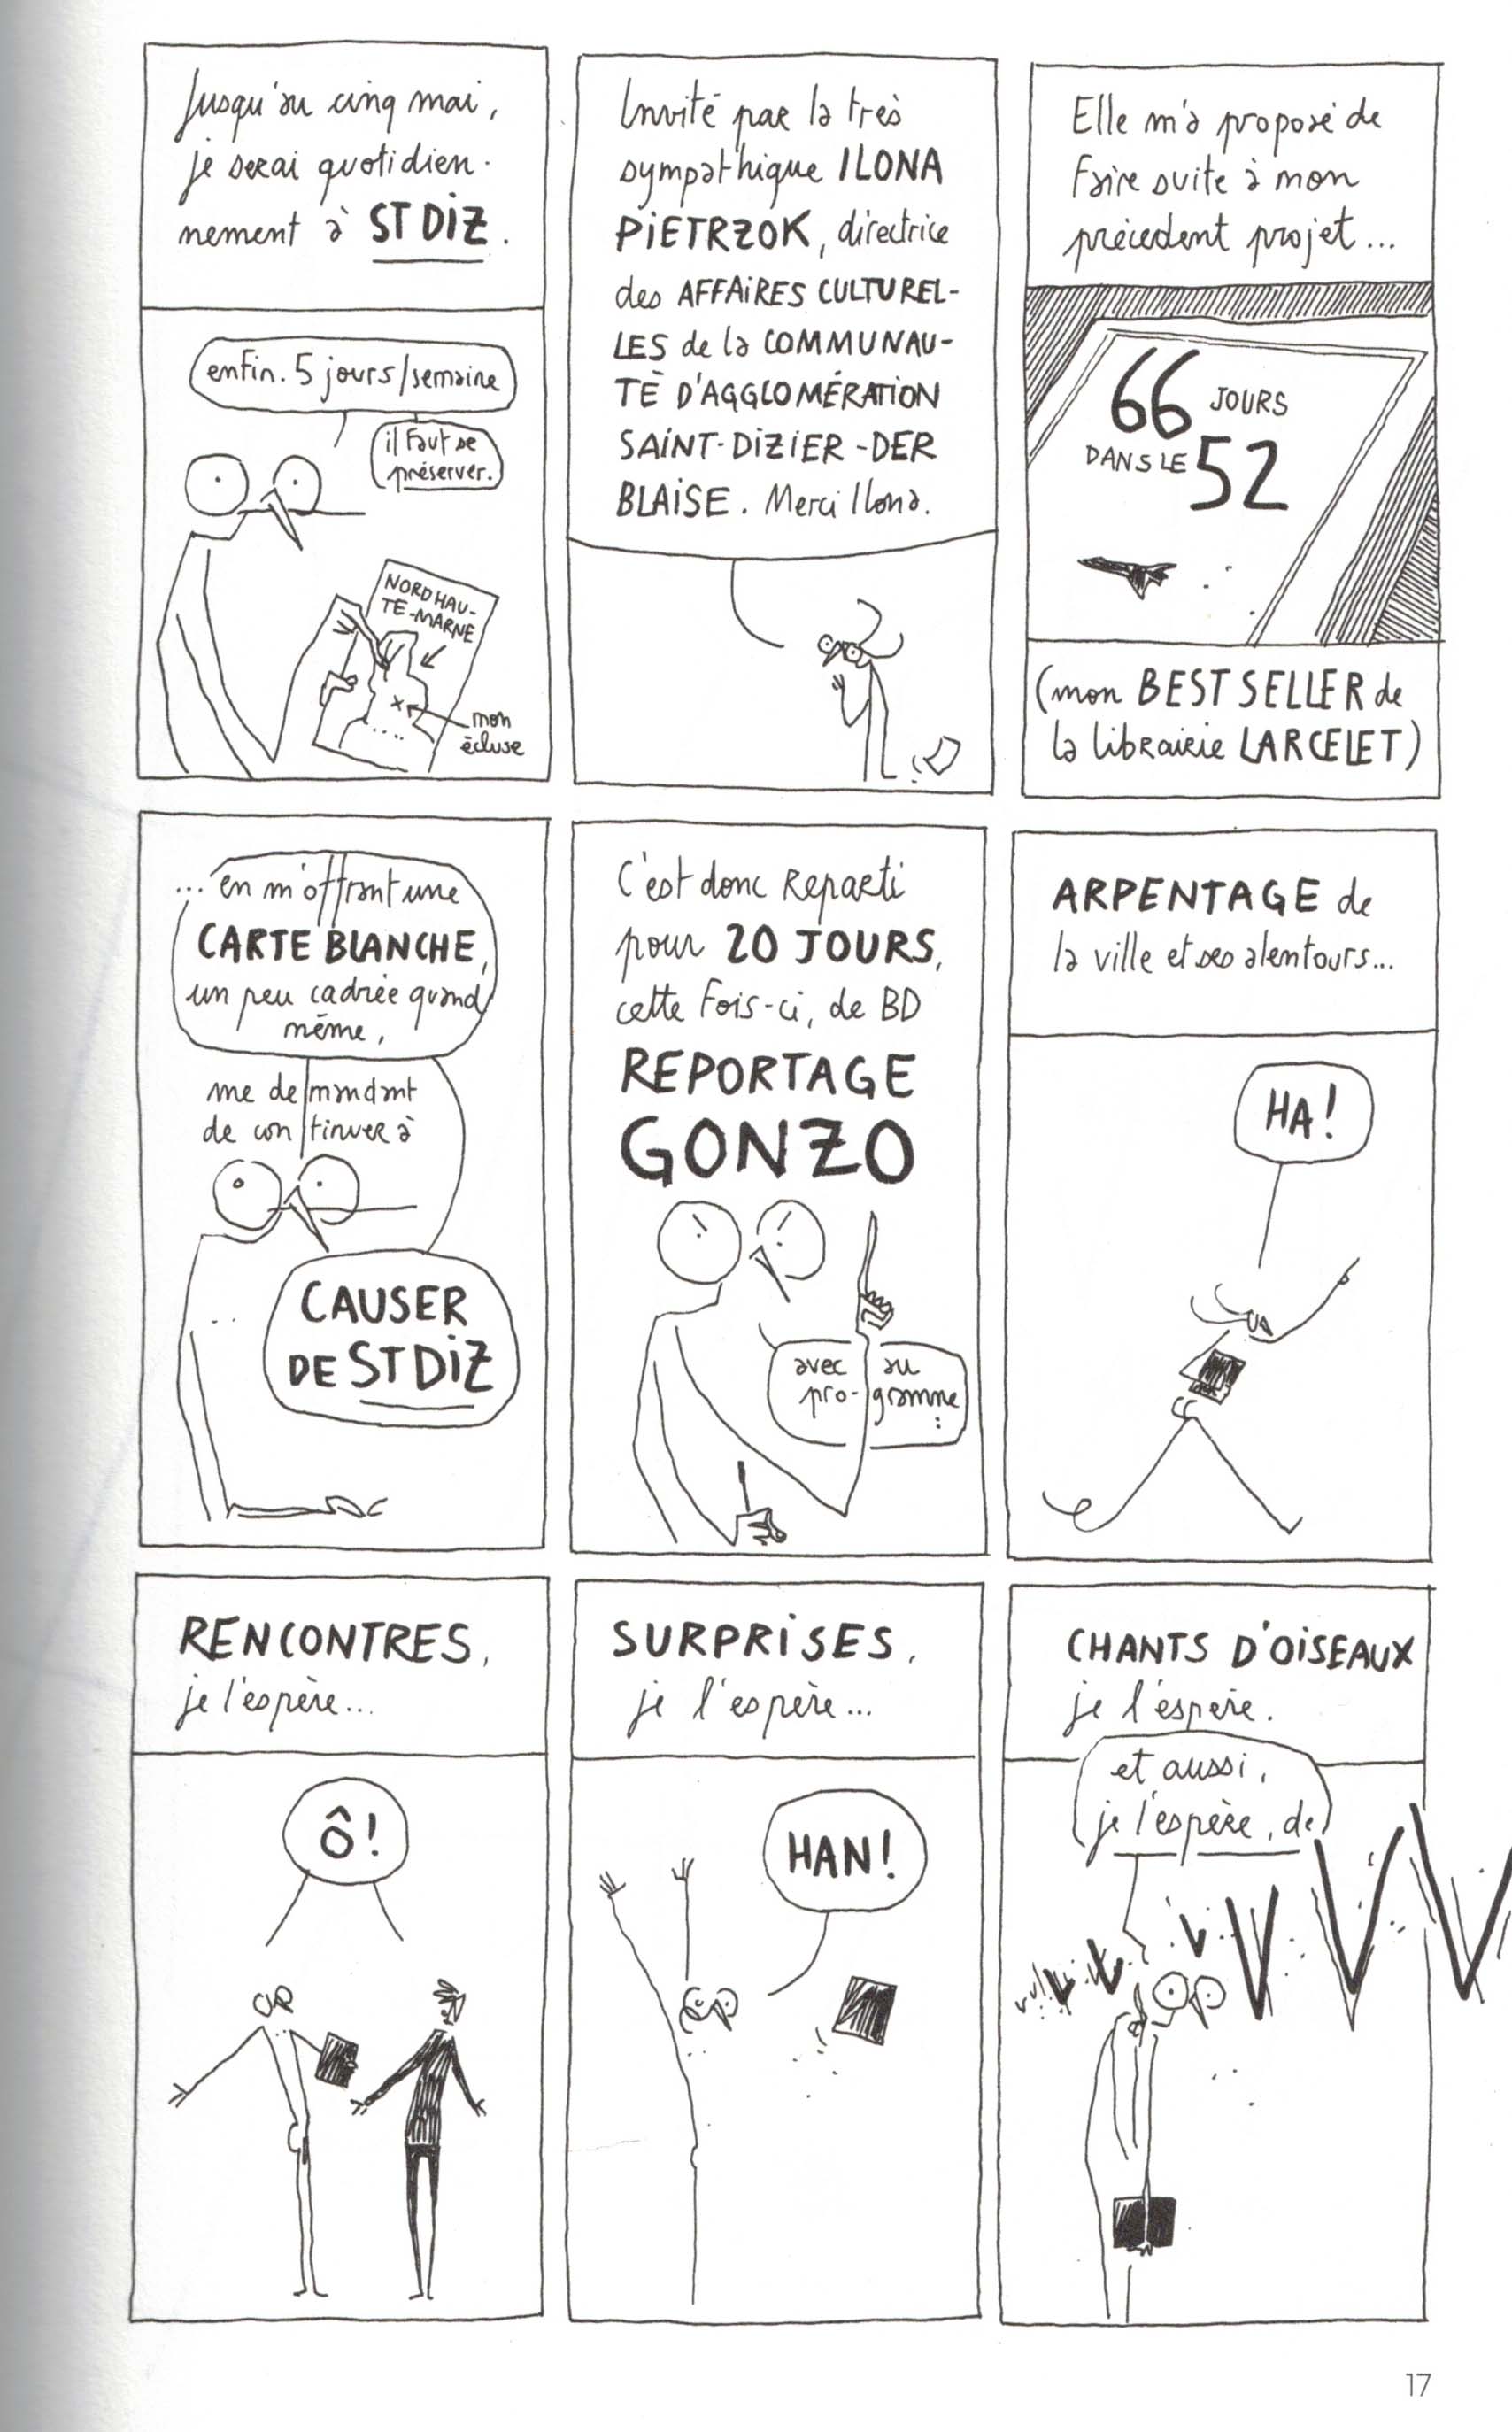 Jusqu'au cinq mai,
je serai quotidien-
nement à ST DiZ.
enfin. 5 jours/semaine
il faut se
préserver.
NORD HAU-
TE-MARNE
mon
écluse
Invité par la très
sympathique ILONA
PiETRZOK, directrice
des AFFAiRES CULTUREL-
LES de la COMMUNAU-
TÉ D'AGGLOMÉRATiON
SAiNT-DiZiER-DER
BLAiSE. Merci Ilona.
Elle m'a proposé de
faire suite à mon
précédent projet...
66 JOURS
DANS LE 52
(mon BEST SELLER de
la librairie LARCELET)
...en m'offrant une
CARTE BLANCHE,
un peu cadrée quand
même,
me demandant
de continuer à
CAUSER
DE ST DiZ
C'est donc reparti
pour 20 JOURS,
cette fois-ci, de BD
REPORTAGE
GONZO
avec au
pro-gramme
:
ARPENTAGE de
la ville et ses alentours...
HA!
RENCONTRES,
je l'espère...
Ô!
SURPRiSES,
je l'espère...
HAN!
CHANTS D'OiSEAUX
je l'espère.
et aussi,
je l'espère, de
V V V V V V V
17